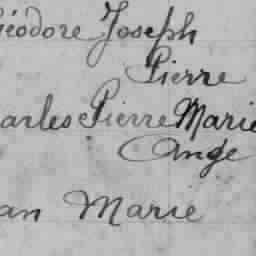 éodore Joseph
Pierre
arles Pierre Marie
Ange
an Marie